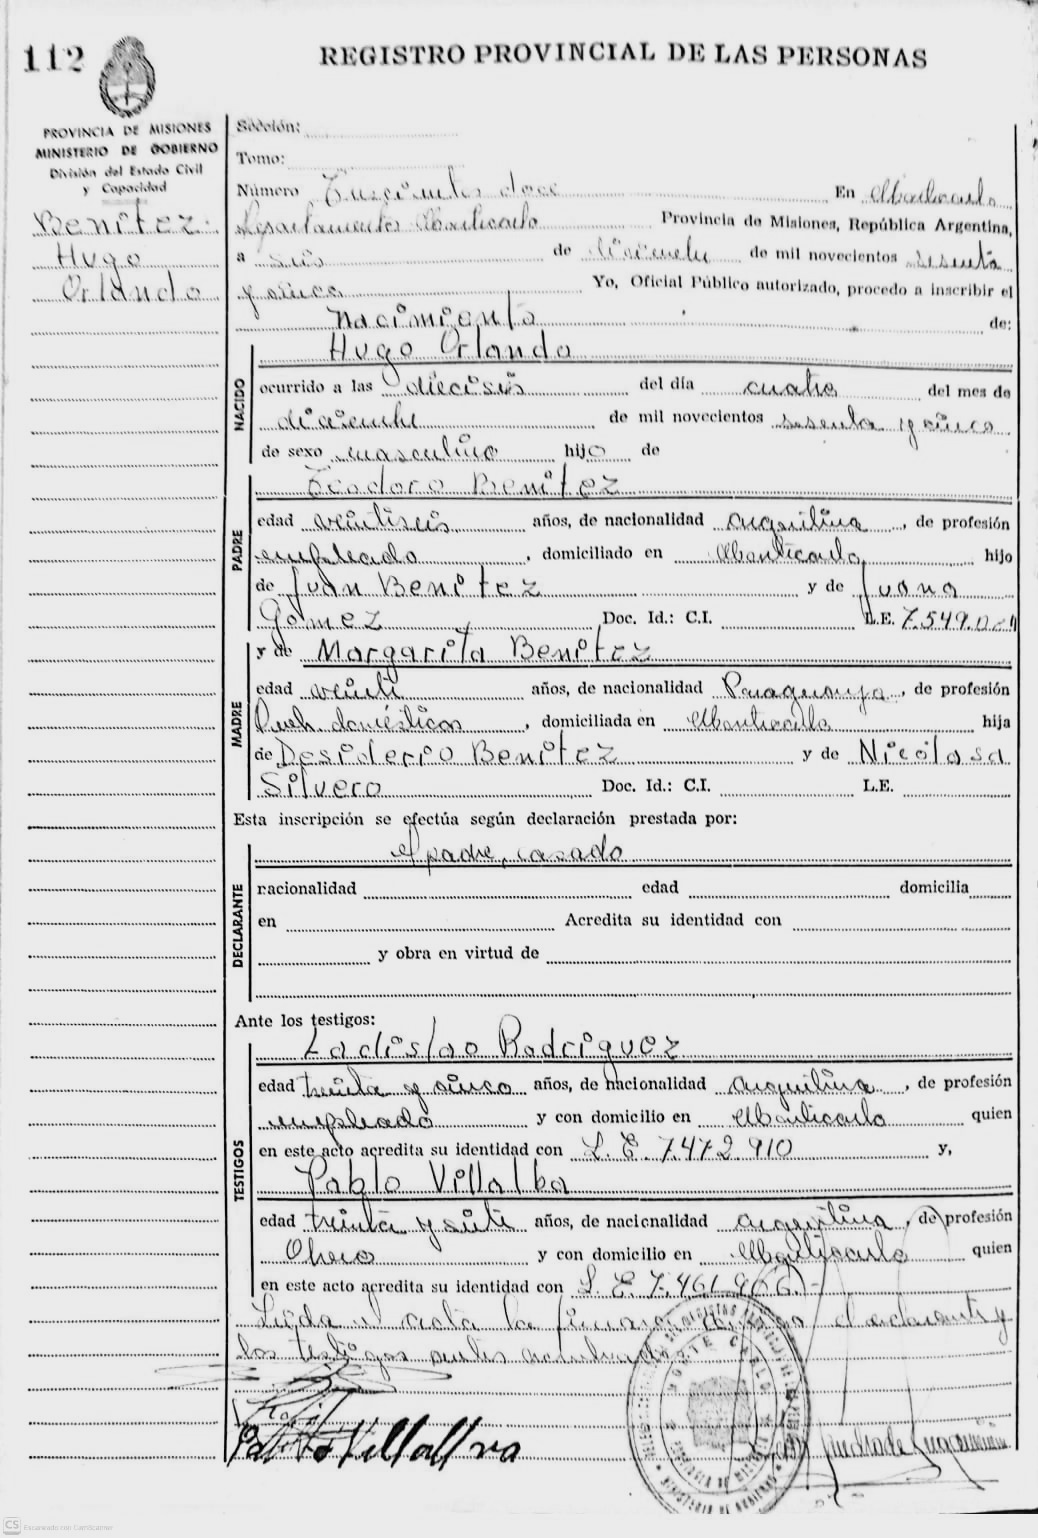 112
REGISTRO PROVINCIAL DE LAS PERSONAS
PROVINCIA DE MISIONES
MINISTERIO DE GOBIERNO
División del Estado Civil
y Capacidad
Benítez
Hugo
Orlando
Sección:
Tomo:
Número doce En Montecarlo
Departamento Montecarlo Provincia de Misiones, República Argentina,
a seis de diciembre de mil novecientos sesenta
y cinco Yo, Oficial Público autorizado, procedo a inscribir el
nacimiento de:
NACIDO
Hugo Orlando
ocurrido a las dieciseis del día cuatro del mes de
diciembre de mil novecientos sesenta y cinco
de sexo masculino hijo de
PADRE
Teodoro Benítez
edad veintiseis años, de nacionalidad argentina, de profesión
empleado, domiciliado en Montecarlo hijo
de Juan Benítez y de Juana
Gomez Doc. Id.: C.I. L.E. 7.549.
MADRE
y de Margarita Benítez
edad veinte años, de nacionalidad Paraguaya, de profesión
domésticos, domiciliada en Montecarlo hija
de Desiderio Benítez y de Nicolasa
Silvero Doc. Id.: C.I. L.E.
Esta inscripción se efectúa según declaración prestada por:
DECLARANTE
el padre, casado
nacionalidad edad domicilia
en Acredita su identidad con
y obra en virtud de
Ante los testigos:
TESTIGOS
Ladislao Rodriguez
edad treinta y cinco años, de nacionalidad argentina, de profesión
empleado y con domicilio en Montecarlo quien
en este acto acredita su identidad con L. E. 7.472.910 y,
Pablo Villalba
edad treinta y siete años, de nacionalidad argentina, de profesión
Obrero y con domicilio en Montecarlo quien
en este acto acredita su identidad con L. E. 7.461.966.-
Leída el acta la firman conmigo el declarante y
los testigos antes nombrados
MONTE CARLO
MINISTERIO DE GOBIERNO
Pablo Villalva
CS Escaneado con CamScanner